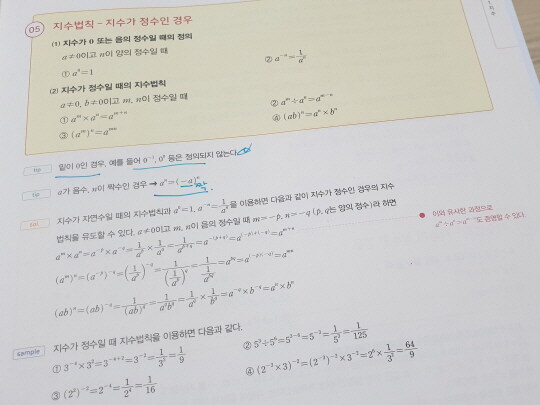 05 지수법칙 – 지수가 정수인 경우
(1) 지수가 0 또는 음의 정수일 때의 정의
a≠0이고 n이 양의 정수일 때
① a⁰=1 ② a⁻ⁿ=1/aⁿ
(2) 지수가 정수일 때의 지수법칙
a≠0, b≠0이고 m, n이 정수일 때
① aᵐ×aⁿ=aᵐ⁺ⁿ ② aᵐ÷aⁿ=aᵐ⁻ⁿ
③ (aᵐ)ⁿ=aᵐⁿ ④ (ab)ⁿ=aⁿ×bⁿ
tip 밑이 0인 경우, 예를 들어 0⁻¹, 0⁰ 등은 정의되지 않는다.
tip a가 음수, n이 짝수인 경우 → aⁿ=(−a)ⁿ 짝
지수가 자연수일 때의 지수법칙과 a⁰=1, a⁻ⁿ=1/aⁿ을 이용하면 다음과 같이 지수가 정수인 경우의 지수
법칙을 유도할 수 있다. a≠0이고 m, n이 음의 정수일 때 m=−p, n=−q (p, q는 양의 정수)라 하면
aᵐ×aⁿ=a⁻ᵖ×a⁻q=1/aᵖ×1/a^q=1/a^(p+q)=a^(−(p+q))=a^((−p)+(−q))=aᵐ⁺ⁿ
이와 유사한 과정으로
aᵐ÷aⁿ=aᵐ⁻ⁿ도 증명할 수 있다.
(aᵐ)ⁿ=(a⁻ᵖ)^(−q)=(1/aᵖ)^(−q)=1/(1/aᵖ)^q=1/(1/a^(pq))=a^(pq)=a^((−p)(−q))=aᵐⁿ
(ab)ⁿ=(ab)^(−q)=1/(ab)^q=1/(a^q b^q)=1/a^q×1/b^q=a^(−q)×b^(−q)=aⁿ×bⁿ
sample 지수가 정수일 때 지수법칙을 이용하면 다음과 같다.
① 3⁻⁴×3²=3⁻⁴⁺²=3⁻²=1/3²=1/9 ② 5³÷5⁶=5³⁻⁶=5⁻³=1/5³=1/125
③ (2²)⁻²=2⁻⁴=1/2⁴=1/16 ④ (2⁻³×3)⁻²=(2⁻³)⁻²×3⁻²=2⁶×1/3²=64/9